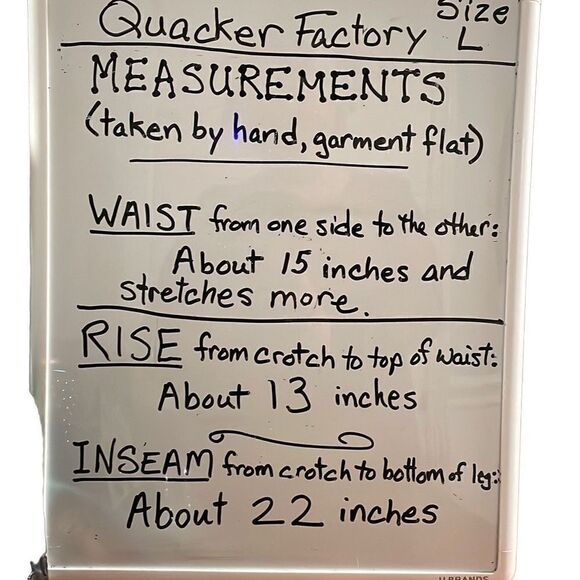 Quacker Factory Size L
MEASUREMENTS
(taken by hand, garment flat)
WAIST from one side to the other:
About 15 inches and
stretches more.
RISE from crotch to top of waist:
About 13 inches
INSEAM from crotch to bottom of leg:
About 22 inches
U BRANDS